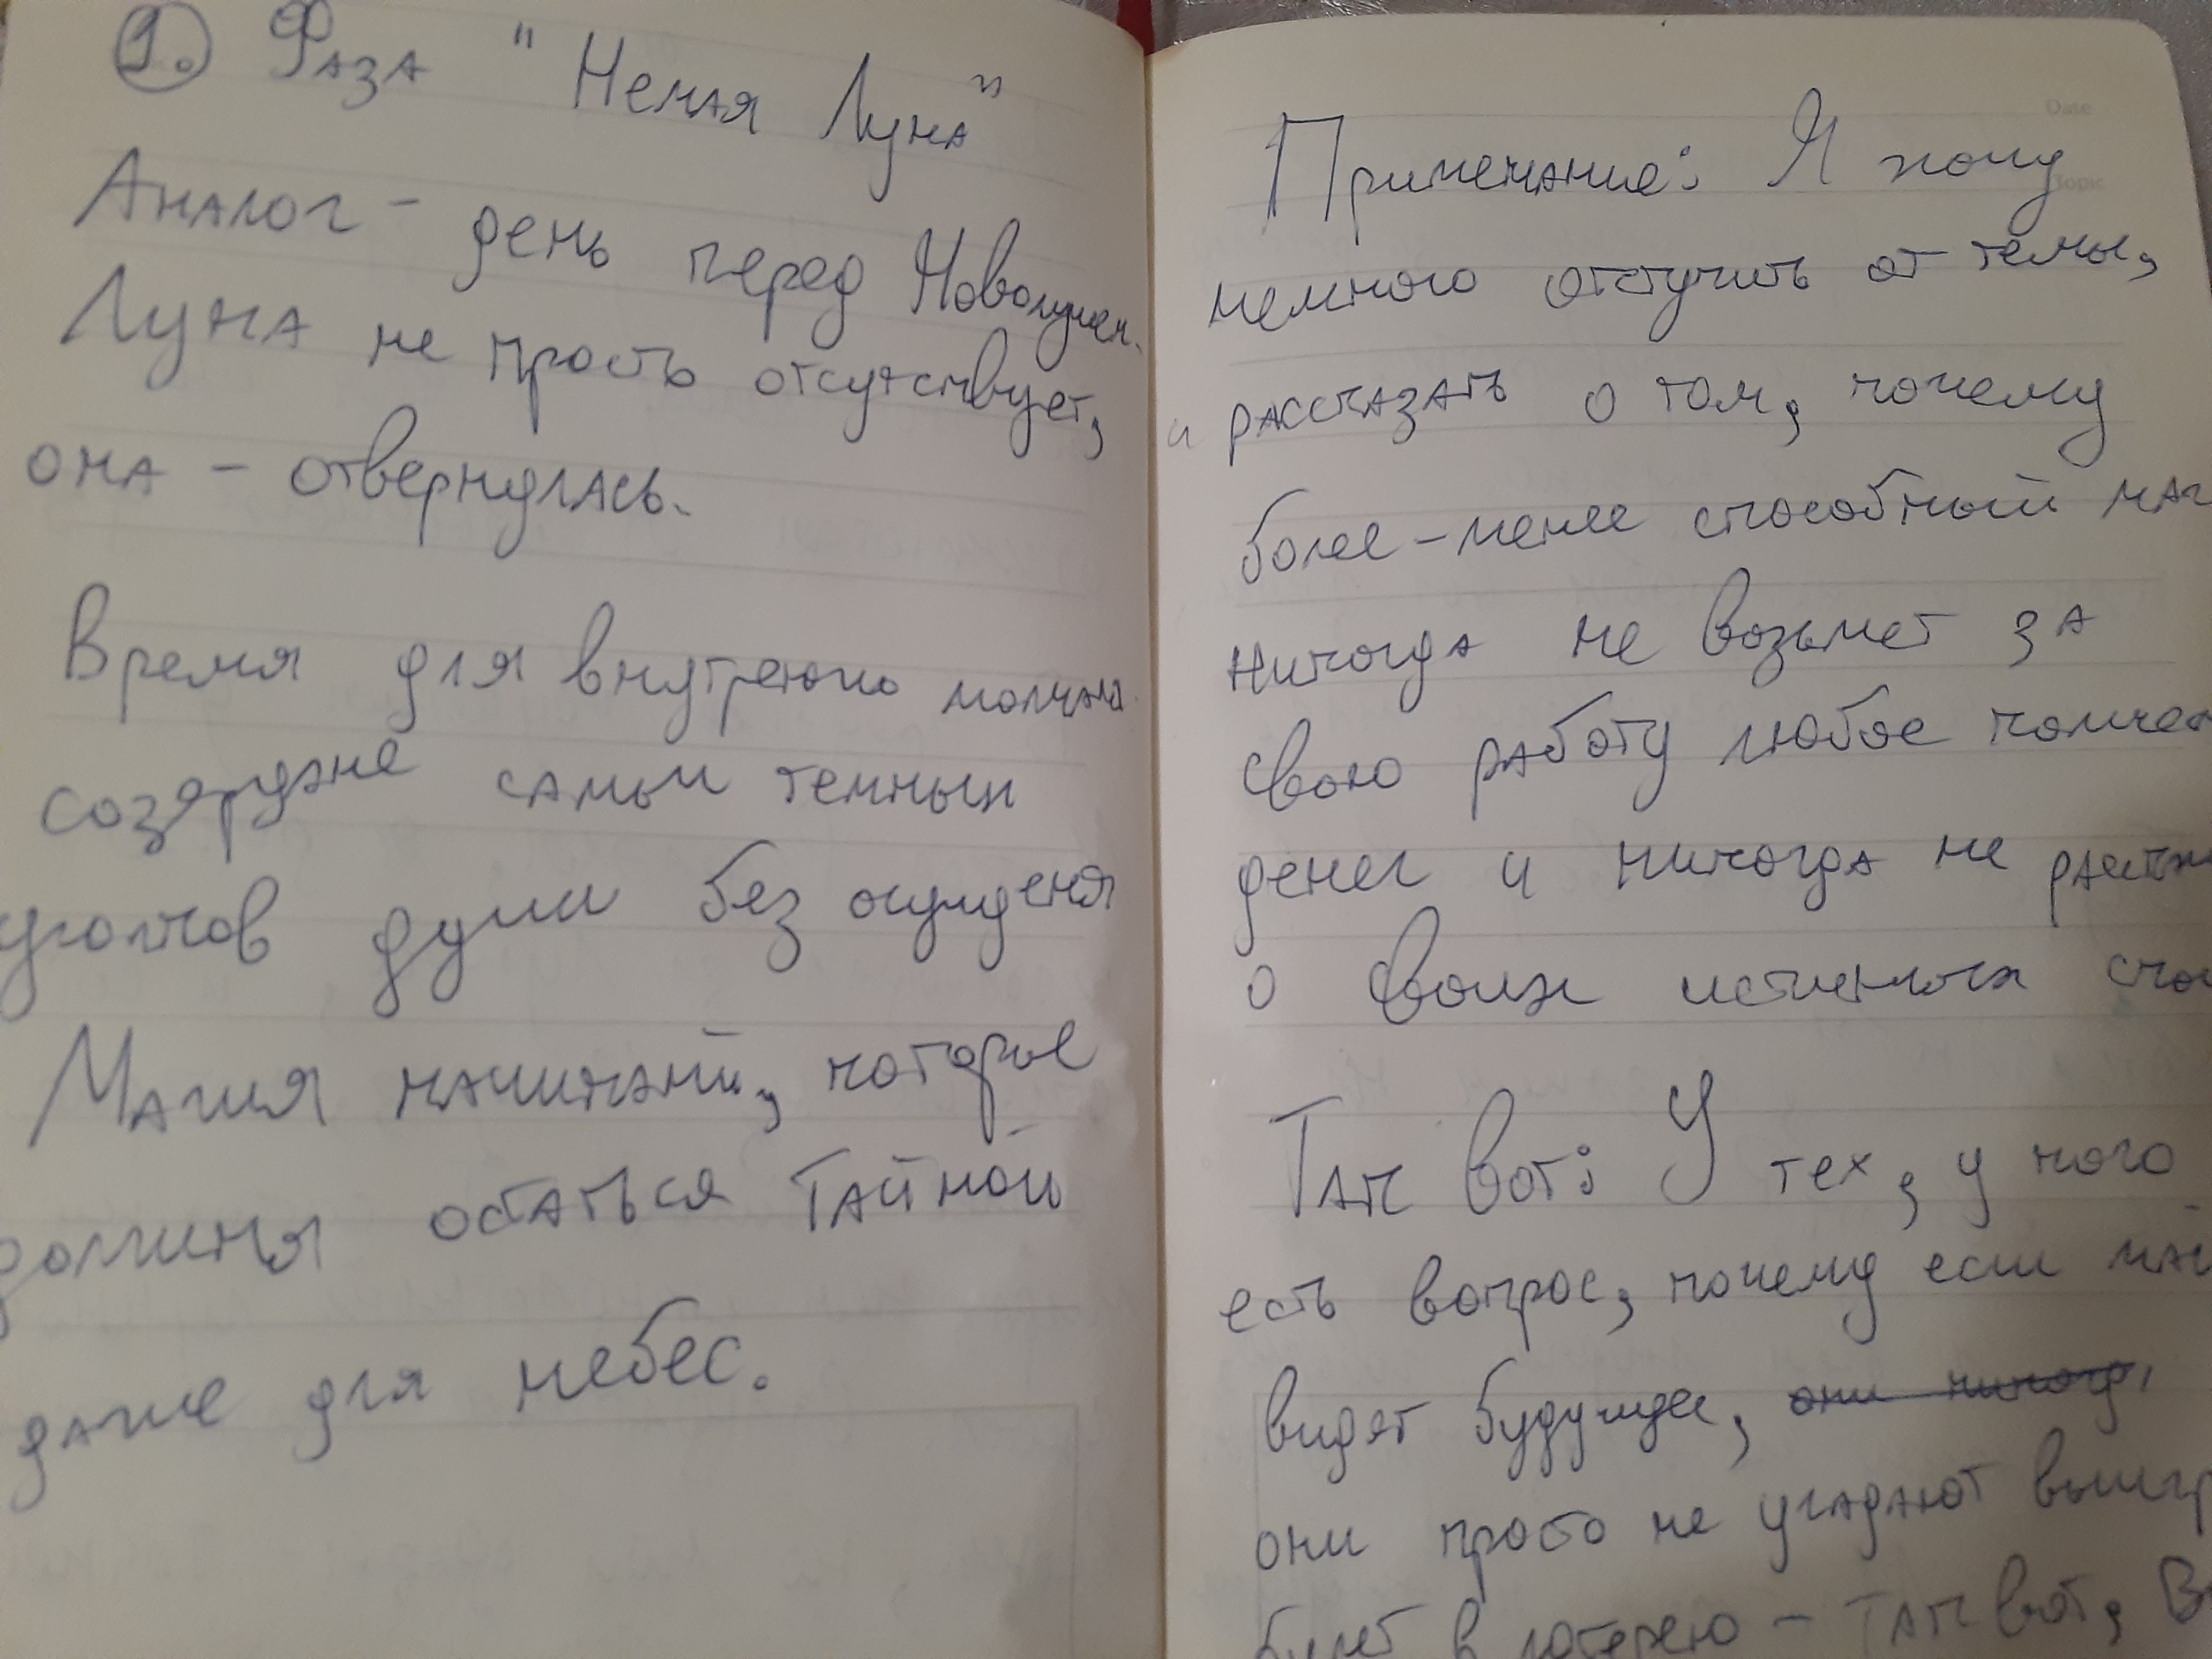 1. Фаза "Немая Луна"
Аналог - день перед Новолунен.
Луна не просто отсутствует,
она - отвернулась.
Время для внутренюго молчана
созерцане самых темных
уголков души без осуждения
Магия начинаний, которые
должны остаться тайной
даже для небес.
Date
Topic
Примечание: Я хочу
немного отступить от темы,
и рассказать о том, почему
более-менее способный маг
никогда не возьмет за
свою работу любое количес
денег и никогда не расска
о своих истинных спос
Так вот: У тех, у кого
есть вопрос, почему если маг
видят будущее, они никогд,
они просто не угадают выигр
билет в лотерею - так вот, В